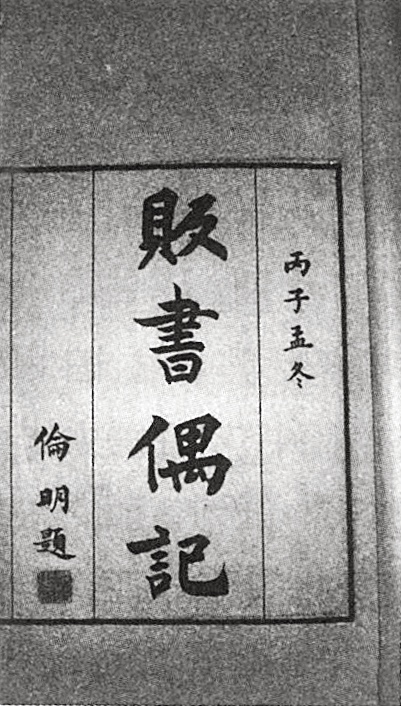 丙子孟冬
販書偶記
倫明題